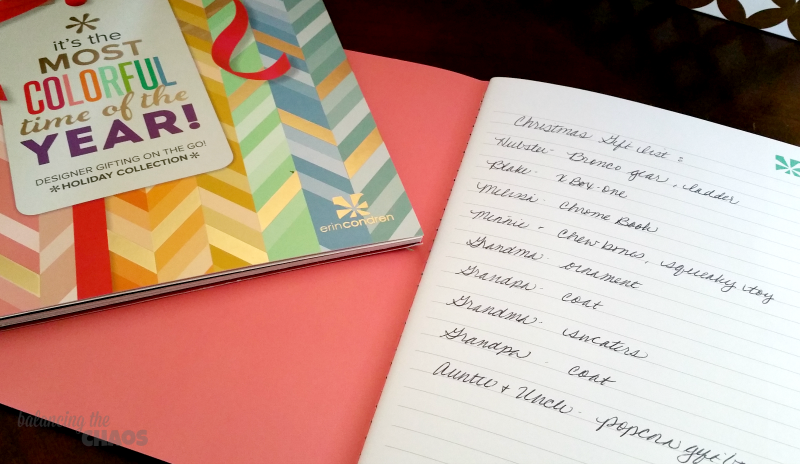 it's the
MOST
COLORFUL
time of the
YEAR!
DESIGNER GIFTING ON THE GO!
*HOLIDAY COLLECTION*
erincondren
Christmas Gift List:
Hubster- Bronco gear, ladder
Blake- XBox-One
Melissa- Chrome Book
Minnie- chew bones, squeaky toy
Grandma- ornament
Grandpa- coat
Grandma- sweaters
Grandpa- coat
Auntie & Uncle- popcorn gift
balancing the
CHAOS